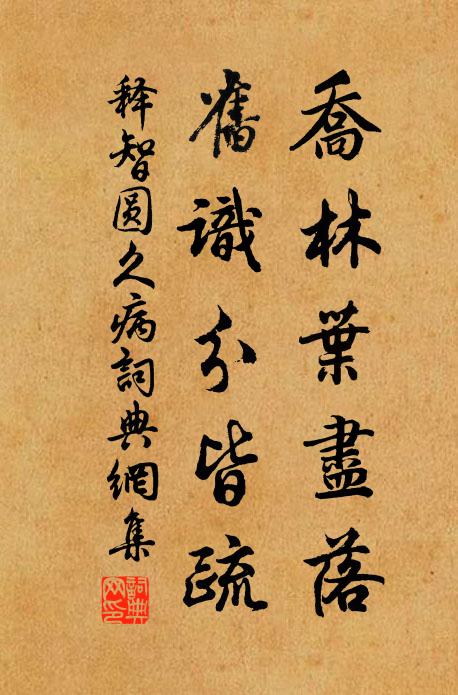 喬林葉盡落
舊識分皆疏
释智圆久病詞典網集
詞典网印